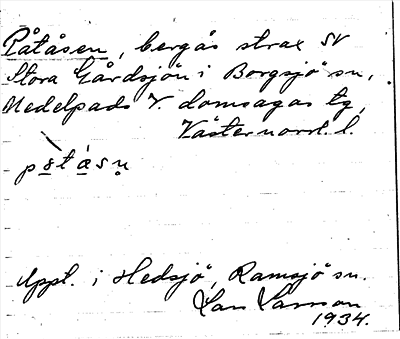 Påtåsen, bergås strax SV
Stora Gårdsjön i Borgsjö sn,
Medelpads V. domsagas tg,
Västernorrl. l.
Uppl. i Hedsjö, Ramsjö sn.
Lars Larsson
1934.